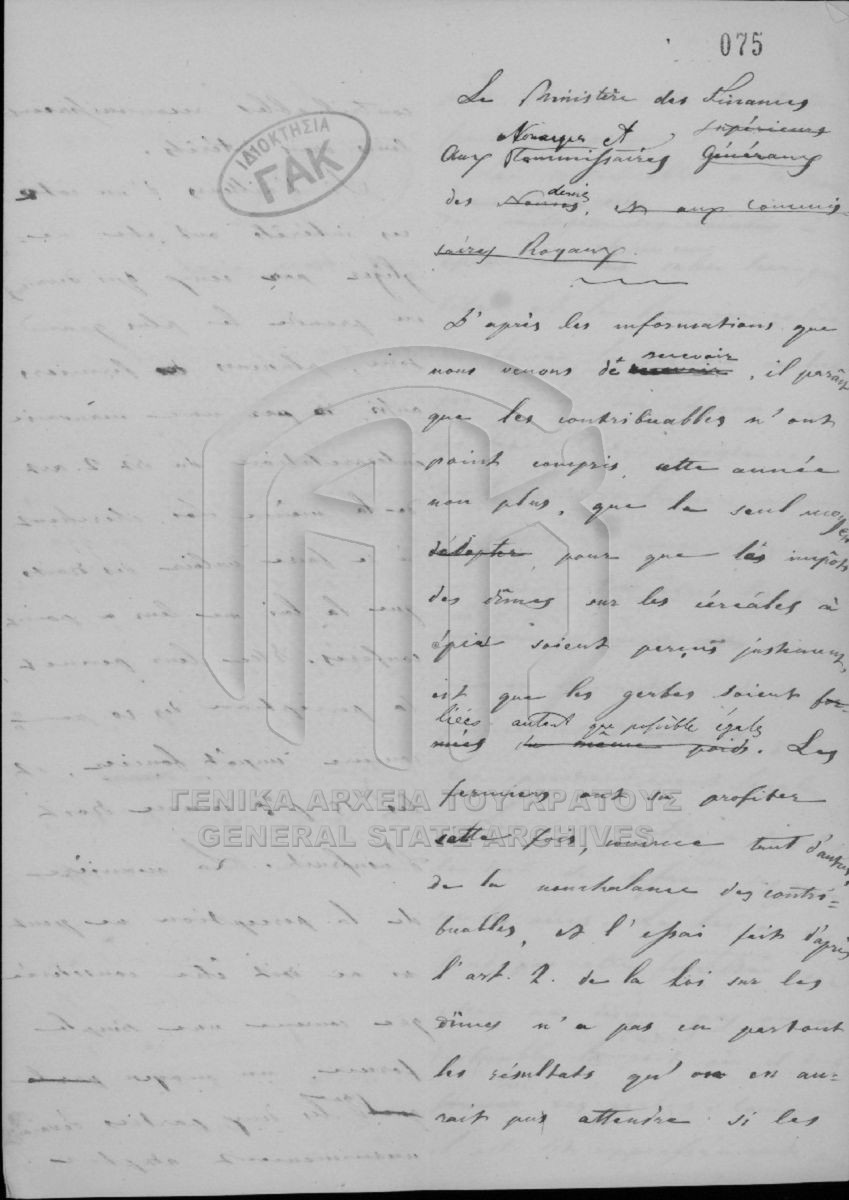 075
ΙΔΙΟΚΤΗΣΙΑ
ΓΑΚ
Le Ministère des Finances
Nomarques et supérieurs
Aux Commissaires Généraux
des dîmes, et aux Commis-
saires Royaux.
D'après les informations que
recevoir
nous venons de recevoir, il paraît
que les contribuables n'ont
point compris cette année
non plus, que le seul moyen
d'adopter, pour que les impôts
des dîmes sur les céréales à
épis soient perçus justement,
est que les gerbes soient for-
liées autant que possible égales
mées du même poids. Les
fermiers ont su profiter
cette fois, comme tant d'autres,
de la nonchalance des contri-
buables, et l'essai fait d'après
l'art. 2. de la Loi sur les
dîmes n'a pas eu partout
les résultats qu'on en au-
rait pus attendre si les
ΓΕΝΙΚΑ ΑΡΧΕΙΑ ΤΟΥ ΚΡΑΤΟΥΣ
GENERAL STATE ARCHIVES